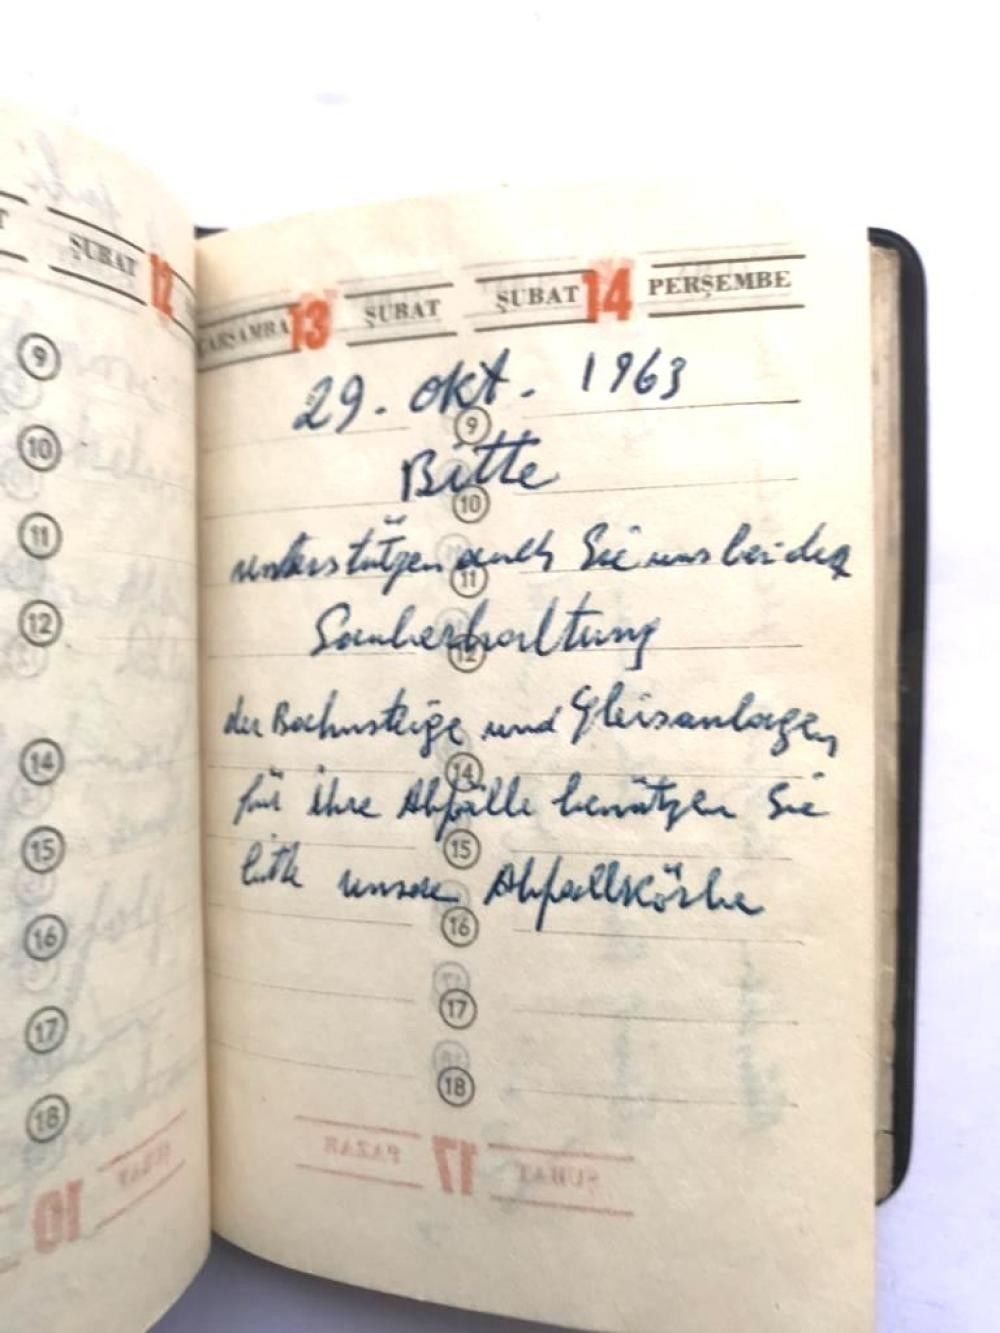 ŞUBAT 12
9
10
11
12
14
15
16
17
18
ÇARŞAMBA 13 ŞUBAT ŞUBAT 14 PERŞEMBE
29. Okt. 1963
9
Bitte
10
unterstützen auch Sie uns bei der
11
Sauberhaltung
12
der Bachnsteige und Gleisanlagen,
14
für ihre Abfälle benützen Sie
15
bitte unsere Abfallskörbe
16
17
18